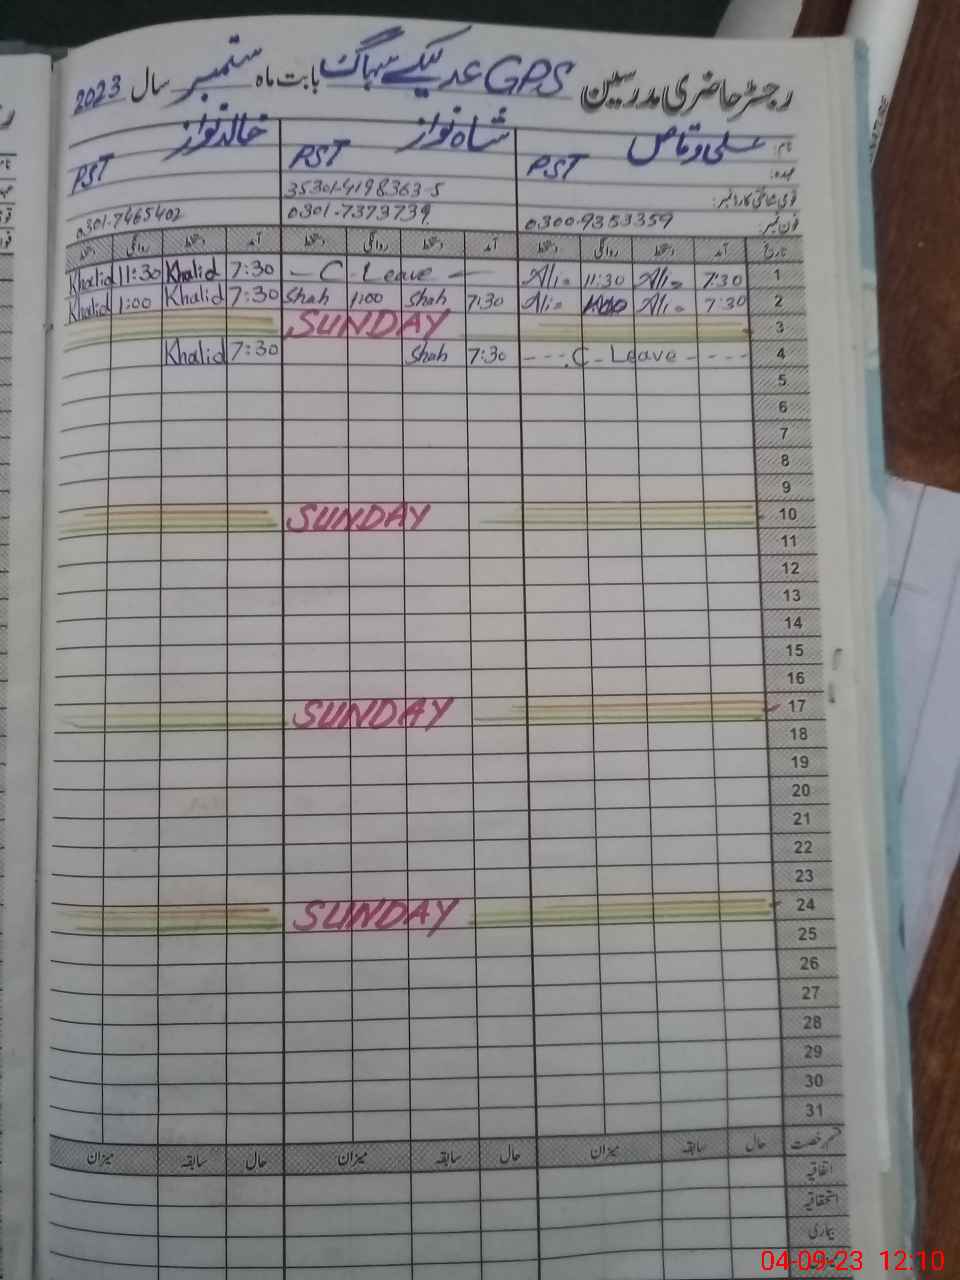 رجسٹر حاضری مدرسین GPS عدیکے سہاگ بابت ماہ ستمبر سال 2023
نام: علی وقاص شاہ نواز خالد نواز
عہدہ: PST PST PST
قومی شناختی کارڈ نمبر: 35301-4198363-5
فون نمبر: 0300-9353359 0301-7373739 0301-7465402
تاریخ آمد دستخط روانگی دستخط آمد دستخط روانگی دستخط آمد دستخط روانگی دستخط
Khalid 11:30 Khalid 7:30 - C - Leave - Ali 11:30 Ali 7:30 1
Khalid 1:00 Khalid 7:30 Shah 1:00 Shah 7:30 Ali Ali 7:30 2
SUNDAY 3
Khalid 7:30 Shah 7:30 ---C-Leave---- 4
5
6
7
8
9
SUNDAY 10
11
12
13
14
15
16
SUNDAY 17
18
19
20
21
22
23
SUNDAY 24
25
26
27
28
29
30
31
قسم رخصت حال سابقہ میزان حال سابقہ میزان حال سابقہ میزان
اتفاقیہ
استحقاقیہ
بیماری
04-09-23 12:10